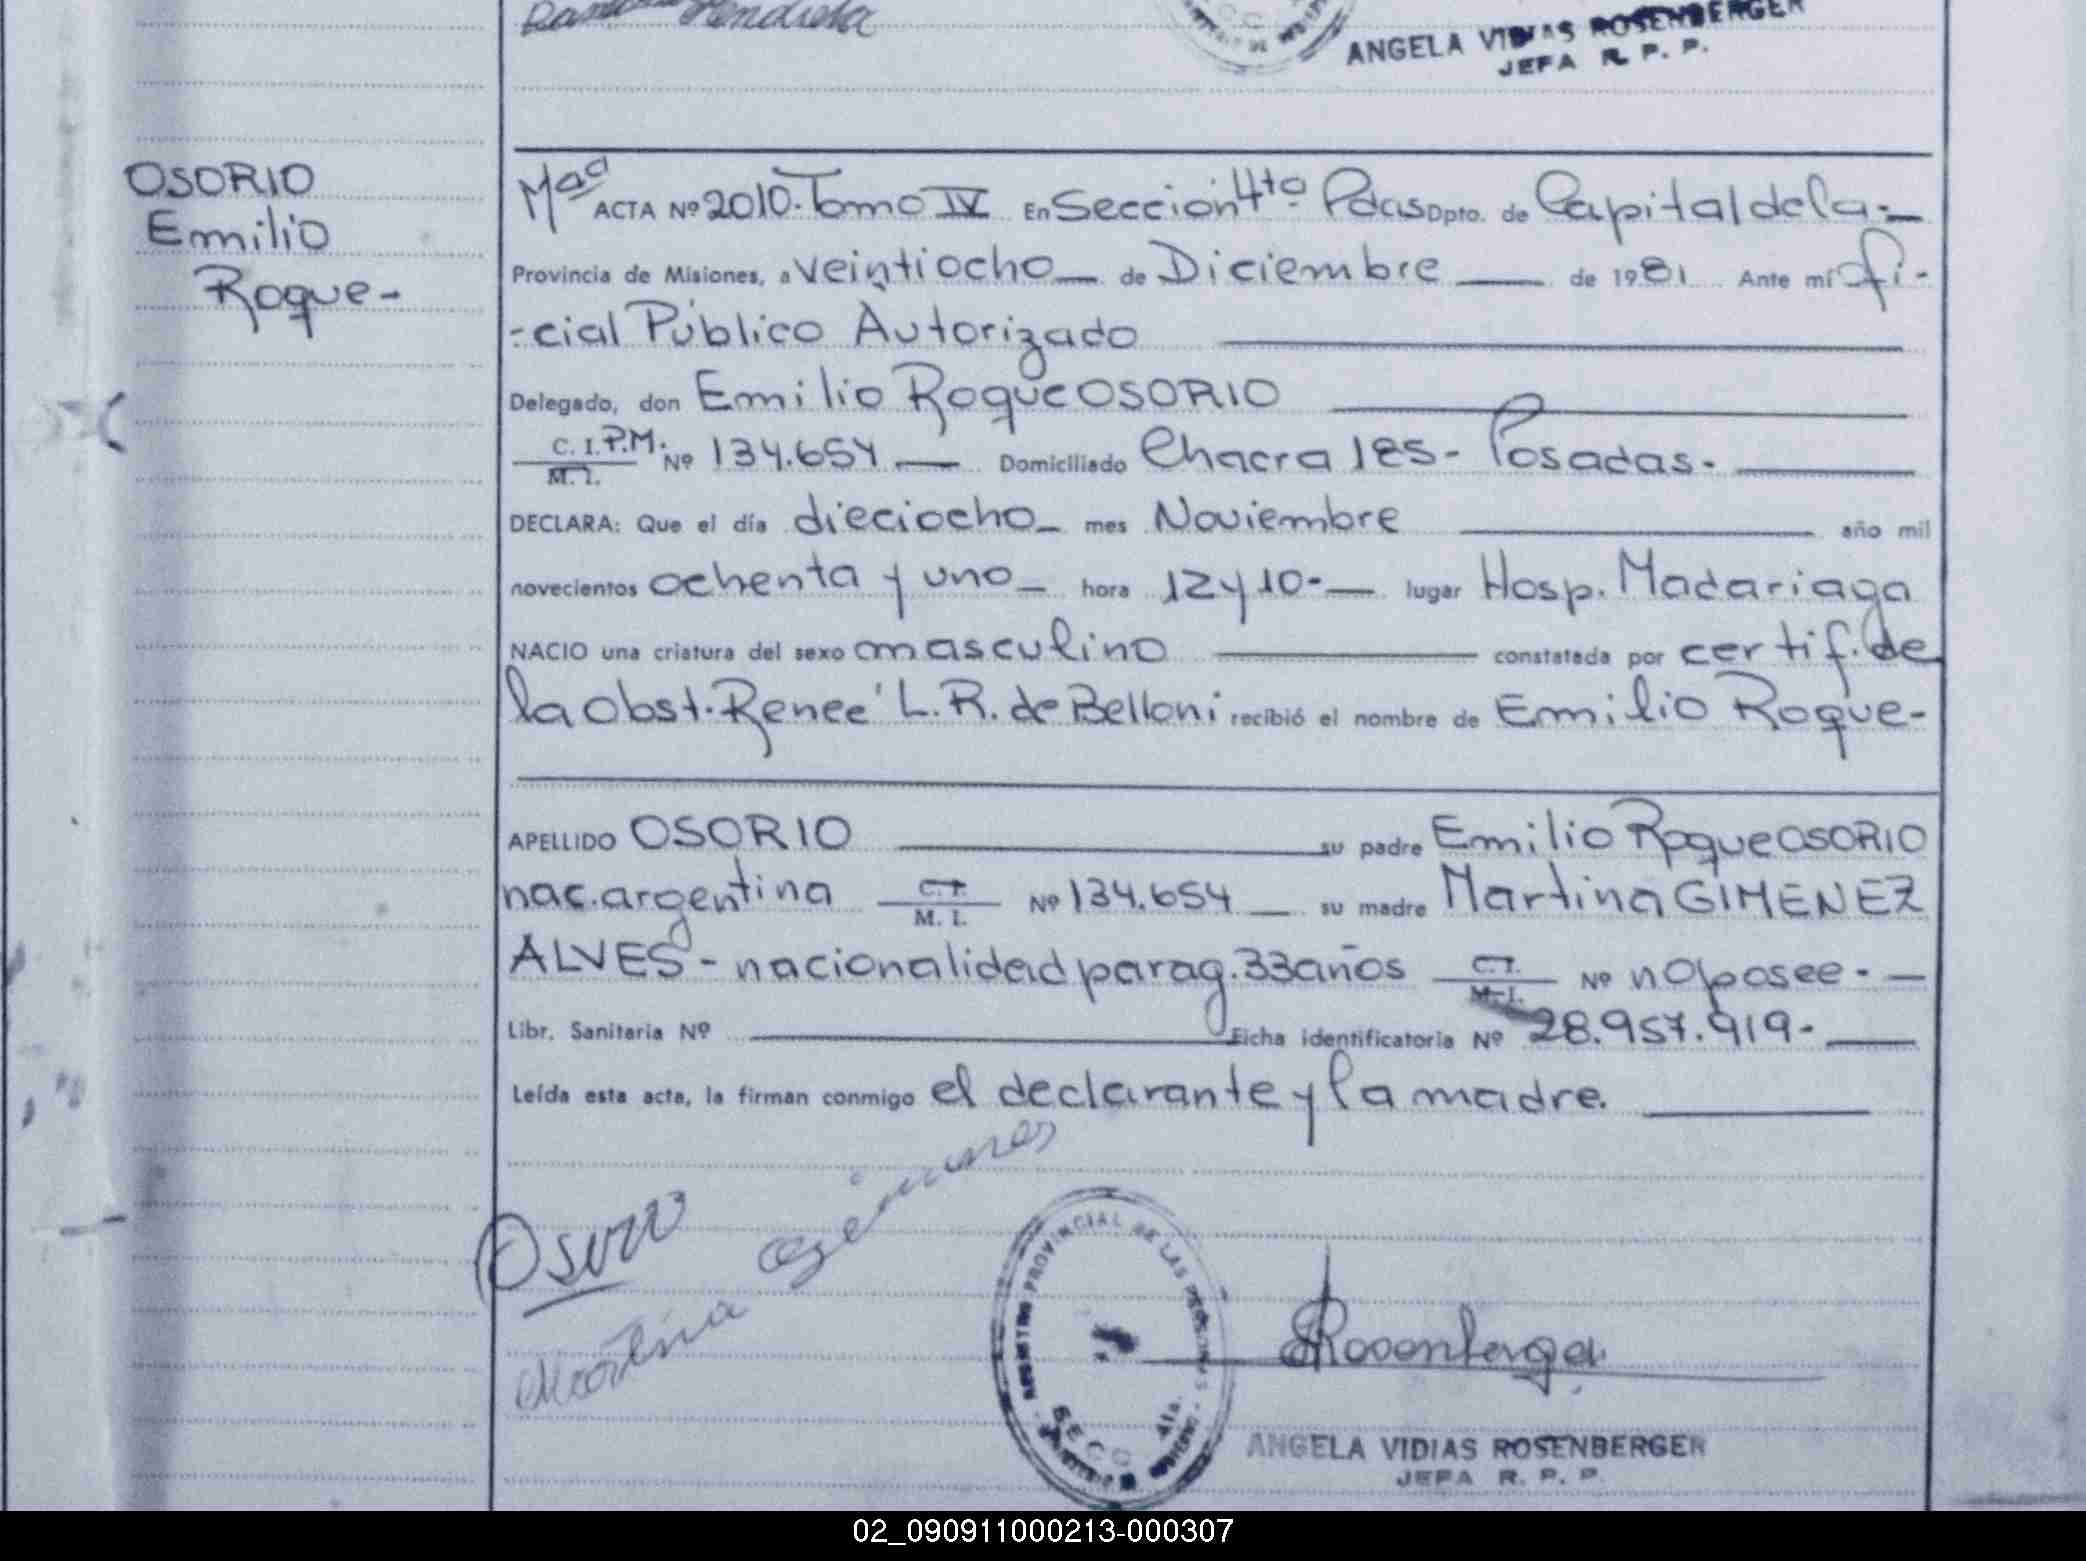 Mendieta
ANGELA VIDIAS ROSENBERGER
JEFA R. P. P.
OSORIO
Emilio
Roque-
Mad ACTA Nº 2010. Tomo IV En Sección 4ta. Pdas Dpto. de Capital de la-
Provincia de Misiones, a veintiocho de Diciembre de 1981 Ante mí Ofi-
-cial Público Autorizado
Delegado, don Emilio Roque OSORIO
C. I. P.M. M. I. Nº 134.654 Domiciliado Chacra 185- Posadas.
DECLARA: Que el día dieciocho mes Noviembre año mil
novecientos ochenta y uno hora 12 y 10- lugar Hosp. Madariaga
NACIO una criatura del sexo masculino constatada por certif. de
la Obst. Renee' L. R. de Belloni recibió el nombre de Emilio Roque-
APELLIDO OSORIO su padre Emilio Roque OSORIO
nac. argentina C. I. M. I. Nº 134.654 su madre Martina GIMENEZ
ALVES - nacionalidad parag. 33 años C. I. M. I. Nº no posee.
Libr. Sanitaria Nº Ficha identificatoria Nº 28.957.919-
Leída esta acta, la firman conmigo el declarante y la madre.
Osorio
Martina Gimenes
REGISTRO PROVINCIAL DE LAS PERSONAS
SECC 4ta.
Rosenberger
ANGELA VIDIAS ROSENBERGER
JEFA R. P. P.
02_090911000213-000307